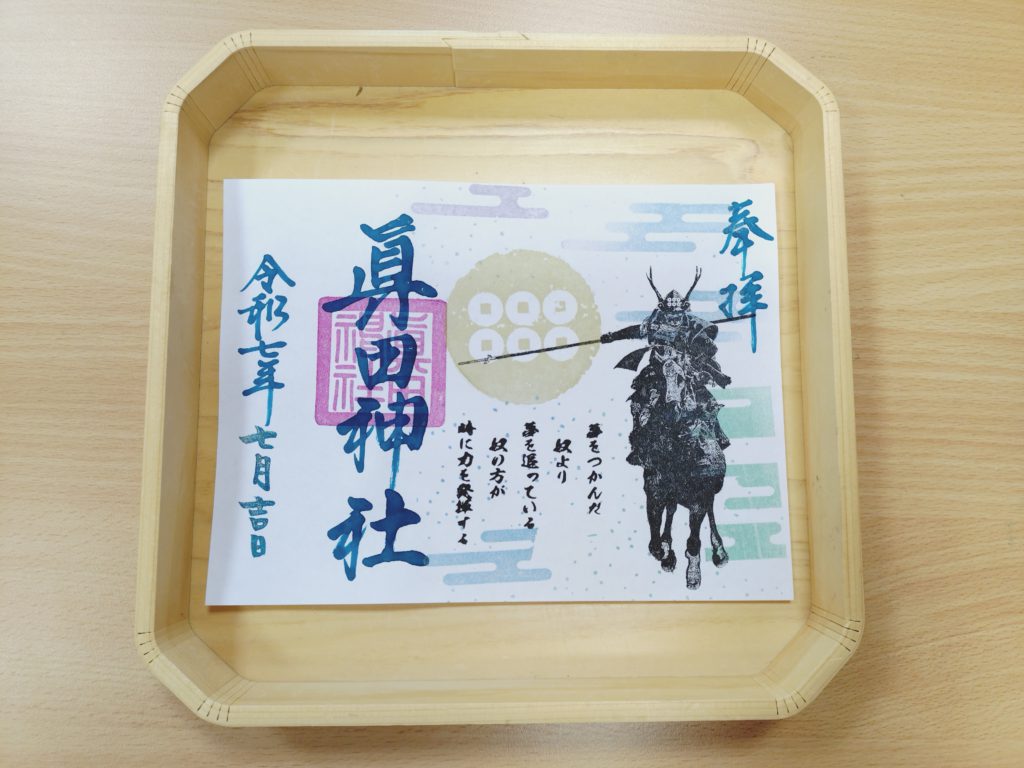 奉拝
夢をつかんだ
奴より
夢を追っている
奴の方が
時に力を発揮する
眞田神社
令和七年七月吉日